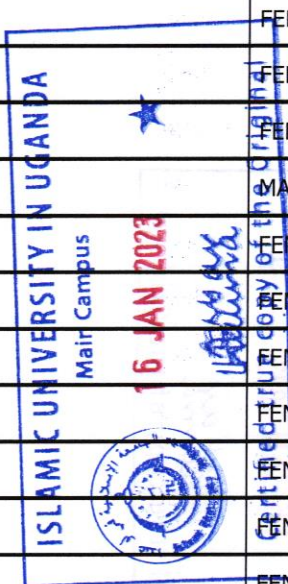 ISLAMIC UNIVERSITY IN UGANDA
Main Campus
16 JAN 2023
Certified true copy of the Original
FEM
FEM
FEM
MA
FEM
FEM
FEM
FEM
FEM
FEM
FEM